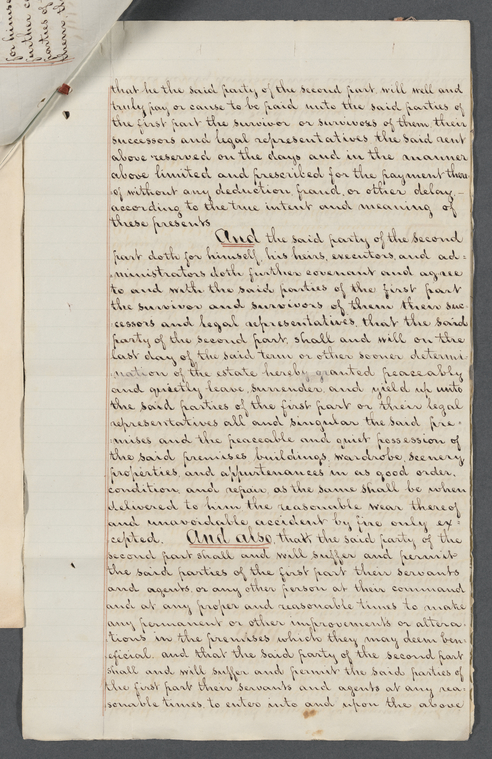 for himse
further co
parties of
them the
that he the said party of the second part, will well and
truly pay or cause to be paid unto the said parties of
the first part the survivor or survivors of them, their
successors and legal representatives, the said rent
above reserved on the days and in the manner
above limited and prescribed for the payment there
of without any deduction, fraud, or other delay,
according to the true intent and meaning of
these presents
And the said party of the second
part doth for himself, his heirs, executors, and ad=
ministrators doth further covenant and agree
to and with the said parties of the first part
the survivor and survivors of them their suc=
cessors and legal representatives, that the said
party of the second part, shall and will on the
last day of the said term or other sooner determi
nation of the estate hereby granted peaceably
and quietly leave, surrender, and yield up unto
the said parties of the first part or their legal
representatives all and singular the said pre=
mises and the peaceable and quiet possession of
the said premises buildings, wardrobe, scenery
properties, and appurtenances in as good order,
condition, and repair, as the same shall be when
delivered to him the reasonable wear thereof
and unavoidable accident by fire only ex=
cepted. And also, that the said party of the
second part shall and will suffer and permit
the said parties of the first part their servants
and agents, or any other person at their command
and at any proper and reasonable times to make
any permanent or other improvements or altera=
tions in the premises which they may deem ben=
eficial, and that the said party of the second part
shall and will suffer and permit the said parties of
the first part their servants and agents at any rea=
sonable times to enter into and upon the above